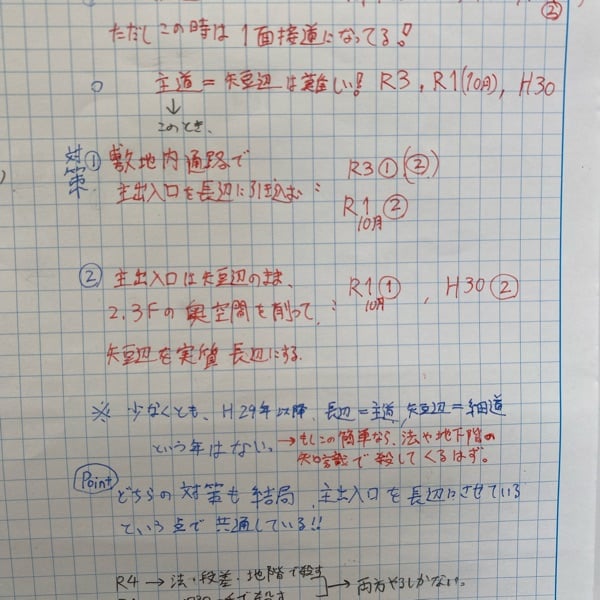 ②
ただしこの時は1面接道になってる!
○ 主道=短辺は難しい! R3, R1(10月), H30
↓
このとき、
対策① 敷地内通路で 主出入口を長辺に引込む: R3①(②)
R1 10月②
② 主出入口は短辺のまま、 : R1 10月①, H30②
2.3Fの奥空間を削って、
短辺を実質長辺にする.
※ 少なくとも、H29年以降、長辺=主道,短辺=細道
という年はない。→もしこの簡単なら、法や地下階の
知識で殺してくるはず。
Point どちらの対策も結局、主出入口を長辺にさせている
という点で共通している!!
R4→法・段差・地階で殺す → 両方やるしかない。
で殺す